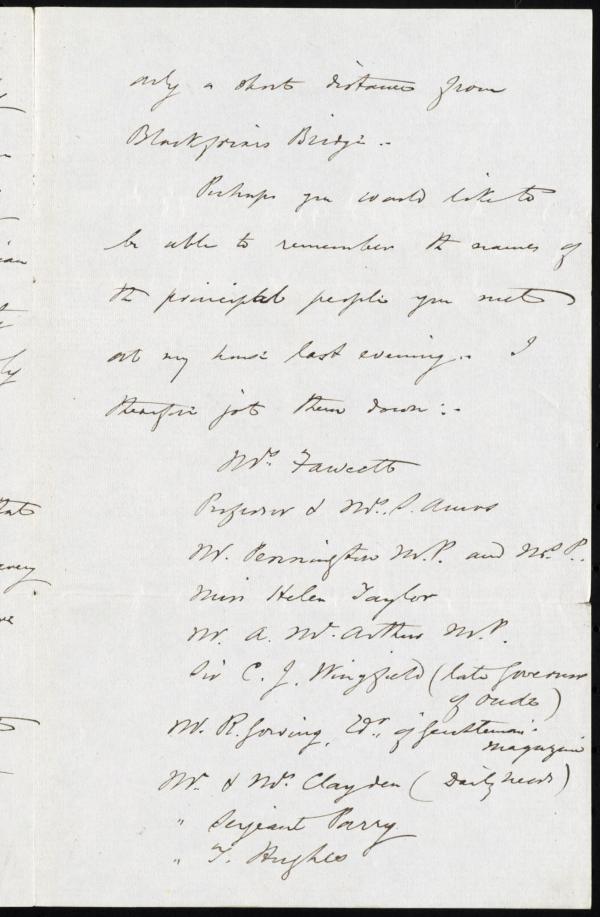 only a short distance from
Blackfriars Bridge.-
Perhaps you would like to
be able to remember the names of
the principal people you met
at my house last evening.- I
therefore jot them down:-
Mrs. Fawcett
Professor & Mrs. S. Amos
Mr. Pennington M.P. and Mrs. P.
Miss Helen Taylor
Mr. A. McArthur M.P.
Sir C. J. Wingfield (late Governor
of Oude)
Mr. R. Gowing, Edr. of Gentleman's
Magazine
Mr. & Mrs. Clayden (Daily News)
" Serjeant Parry
" T. Hughes